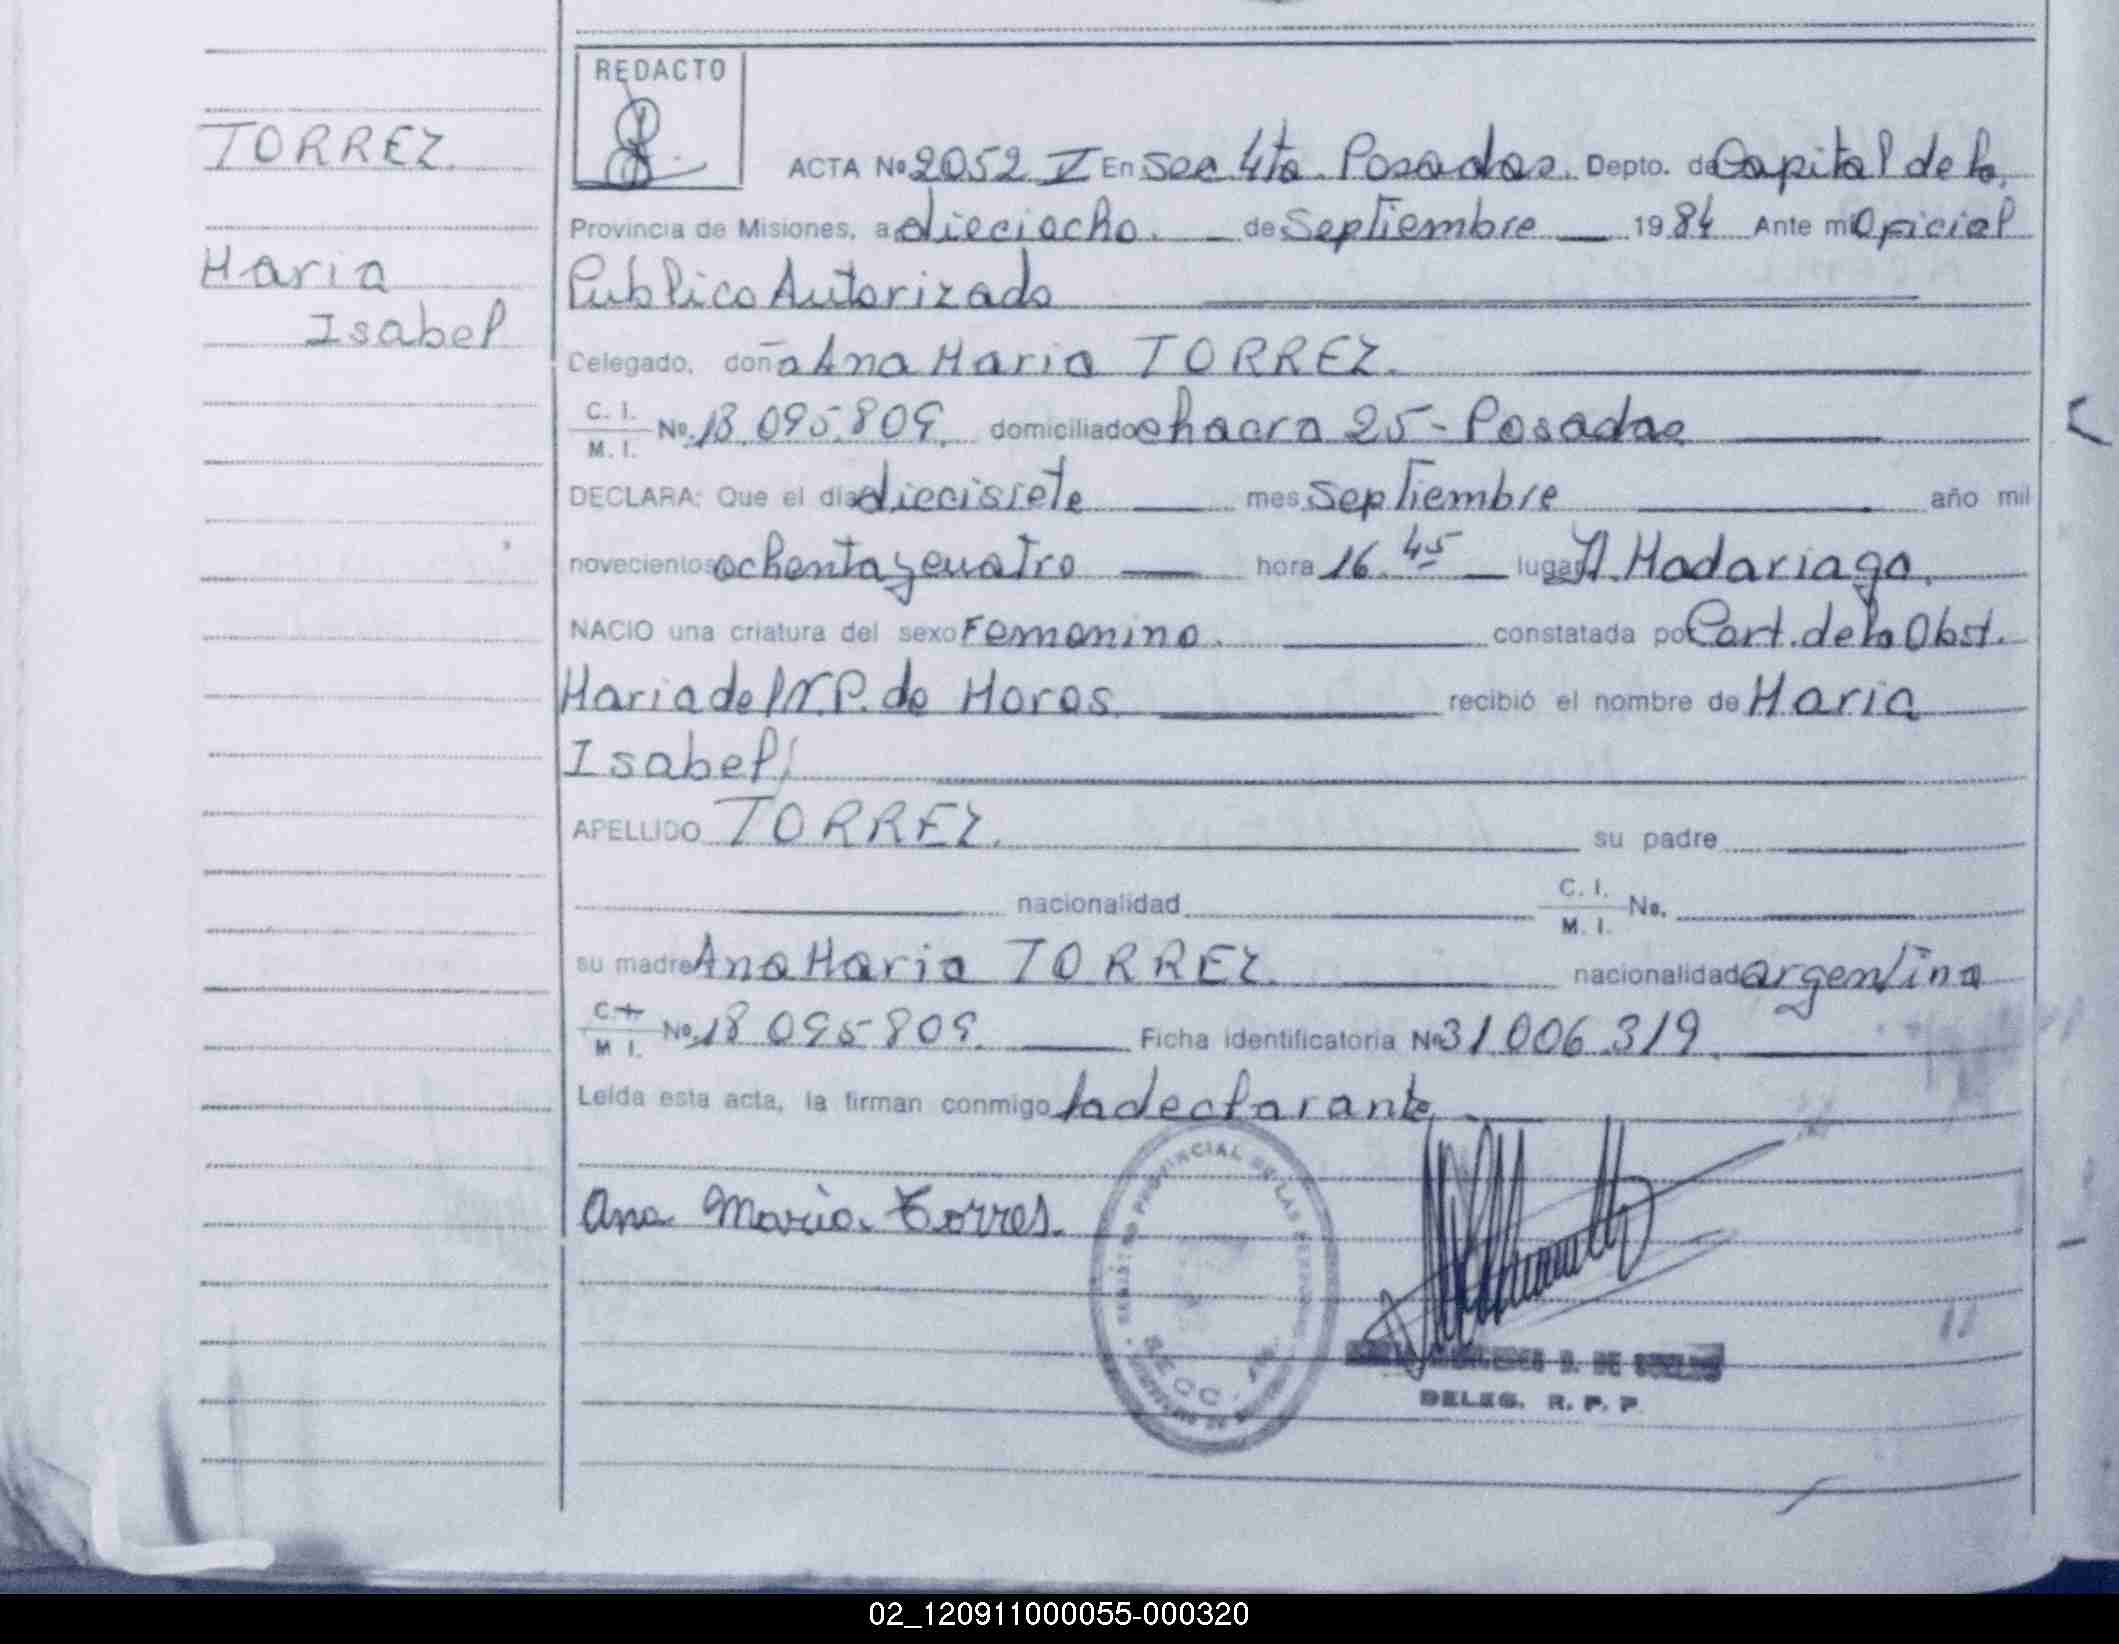 REDACTO
TORREZ.
Maria
Isabel
ACTA Nº 2052 V En Sec 4ta. Posadas. Depto. de Capital de la,
Provincia de Misiones, a dieciocho. de Septiembre 1984 Ante mi Oficial
Publico Autorizado
Celegado, doña Ana Maria TORREZ.
C. I.
M. I. Nº. 18.095.809. domiciliado chacra 25 - Posadas
DECLARA: Que el día diecisiete mes Septiembre año mil
novecientos ochenta y cuatro hora 16.45 lugar H. Madariaga.
NACIO una criatura del sexo Femenino. constatada por Cert. de la Obst.
Maria del N.P. de Moros recibió el nombre de Maria
Isabel/
APELLIDO TORREZ. su padre
nacionalidad C. I.
M. I. No.
su madre Ana Maria TORREZ. nacionalidad argentina
C. I.
M I. Nº. 18 095 809. Ficha identificatoria Nº 31.006.319.
Leída esta acta, la firman conmigo la declarante.
REGISTRO PROVINCIAL DE LAS PERSONAS
SECC. 4ta.
Ana Maria Torres.
DE
DELEG. R. P. P.
02_120911000055-000320